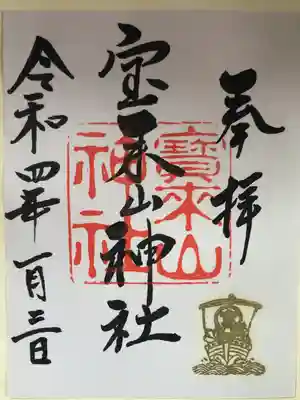 奉拝
宝来山神社
寶來山
神社
令和四年一月三日